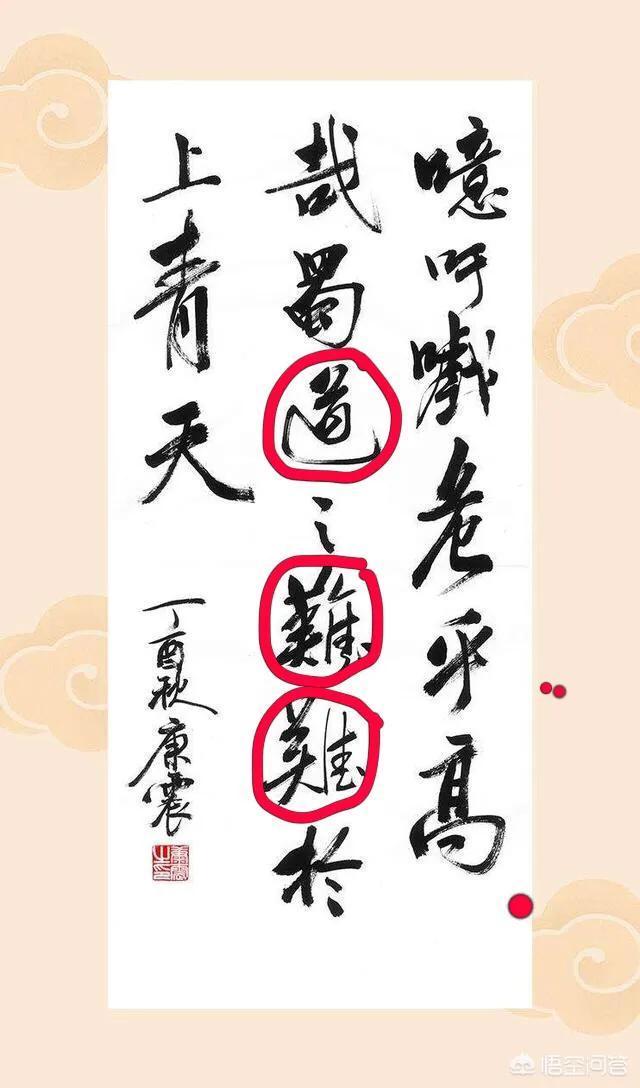 噫吁嚱危乎高
哉蜀道之難難於
上青天
丁酉秋康震
悟空问答